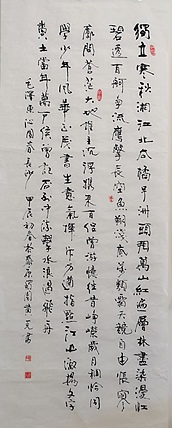 独立寒秋湘江北去橘子洲頭看萬山紅遍層林盡染漫江
碧透百舸争流鷹擊長空魚翔淺底萬類霜天競自由悵寥
廓問蒼茫大地誰主沉浮携来百侣曾游憶往昔峥嵘歲月稠恰同
學少年風華正茂書生意氣揮斥方遒指點江山激揚文字
糞土當年萬户侯曾記否到中流擊水浪遏飛舟
毛澤東沁園春長沙 甲辰初春